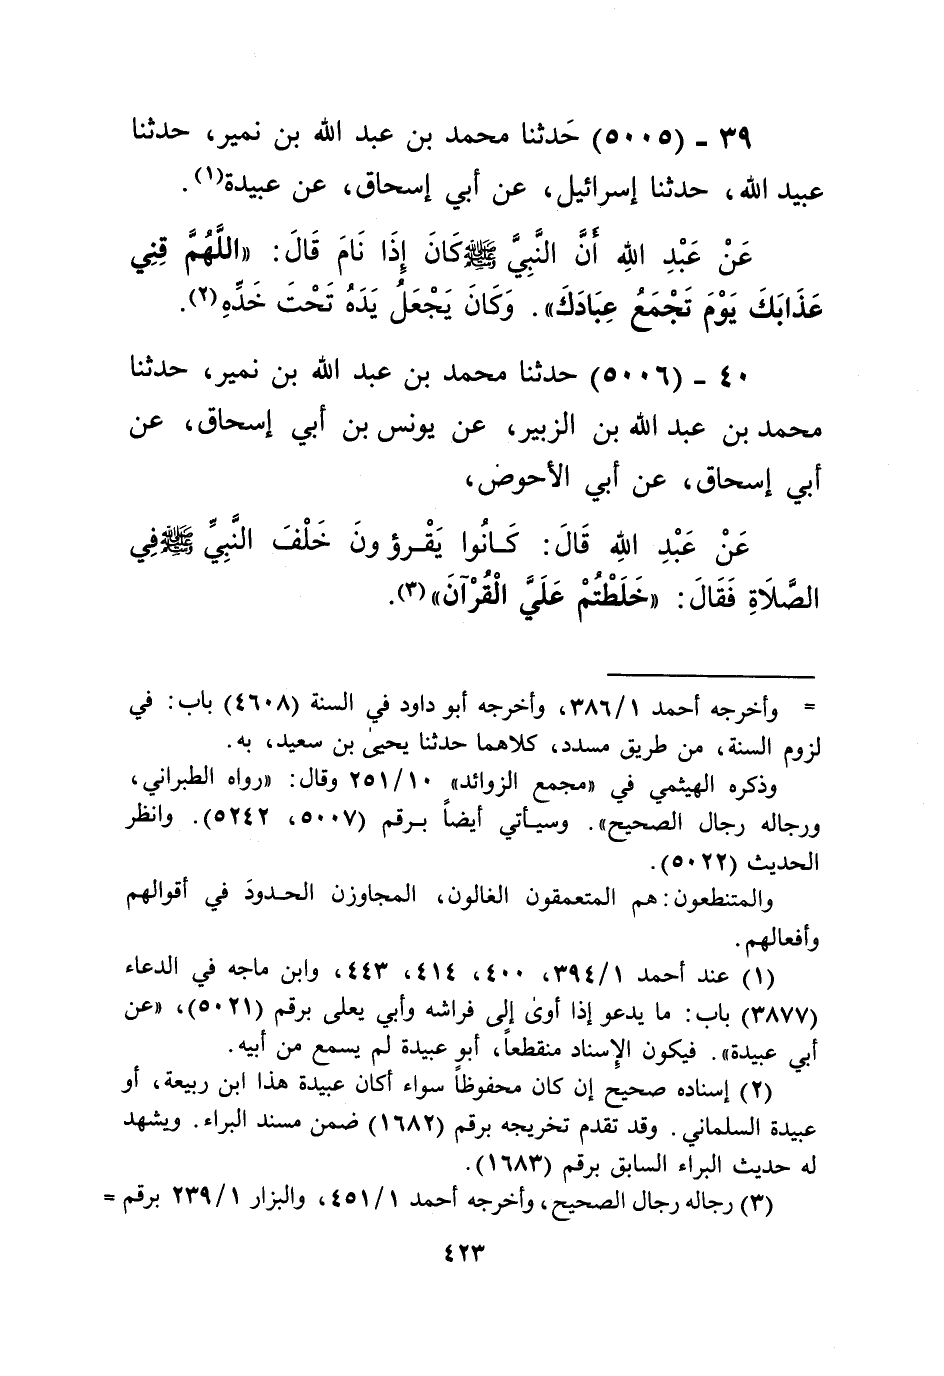 ٣٩ ـ (٥٠٠٥) حَدثنا محمد بن عبد الله بن نمير، حدثنا
عبيد الله، حدثنا إسرائيل، عن أبي إسحاق، عن عبيدة(١).
عَنْ عَبْدِ اللهِ أَنَّ النَّبِيَّ ﷺ كَانَ إِذَا نَامَ قَالَ: «اللَّهُمَّ قِنِي
عَذَابَكَ يَوْمَ تَجْمَعُ عِبَادَكَ». وَكَانَ يَجْعَلُ يَدَهُ تَحْتَ خَدِّهِ(٢).
٤٠ ـ (٥٠٠٦) حدثنا محمد بن عبد الله بن نمير، حدثنا
محمد بن عبد الله بن الزبير، عن يونس بن أبي إسحاق، عن
أبي إسحاق، عن أبي الأحوض،
عَنْ عَبْدِ اللهِ قَالَ: كَانُوا يَقْرؤُونَ خَلْفَ النَّبِيِّ ﷺ فِي
الصَّلَاةِ فَقَالَ: «خَلَطْتُمْ عَلَيَّ الْقُرْآنَ»(٣).
= وأخرجه أحمد ٣٨٦/١، وأخرجه أبو داود في السنة (٤٦٠٨) باب: في
لزوم السنة، من طريق مسدد، كلاهما حدثنا يحيىٰ بن سعيد، به.
وذكره الهيثمي في «مجمع الزوائد» ٢٥١/١٠ وقال: «رواه الطبراني،
ورجاله رجال الصحيح». وسيأتي أيضاً برقم (٥٠٠٧، ٥٢٤٢). وانظر
الحديث (٥٠٢٢).
والمتنطعون: هم المتعمقون الغالون، المجاوزن الحدودَ في أقوالهم
وأفعالهم.
(١) عند أحمد ٣٩٤/١، ٤٠٠، ٤١٤، ٤٤٣، وابن ماجه في الدعاء
(٣٨٧٧) باب: ما يدعو إذا أوىٰ إلى فراشه وأبي يعلى برقم (٥٠٢١)، «عن
أبي عبيدة». فيكون الإسناد منقطعاً، أبو عبيدة لم يسمع من أبيه.
(٢) إسناده صحيح إن كان محفوظاً سواء أكان عبيدة هذا ابن ربيعة، أو
عبيدة السلماني. وقد تقدم تخريجه برقم (١٦٨٢) ضمن مسند البراء. ويشهد
له حديث البراء السابق برقم (١٦٨٣).
(٣) رجاله رجال الصحيح، وأخرجه أحمد ٤٥١/١، والبزار ٢٣٩/١ برقم =
٤٢٣